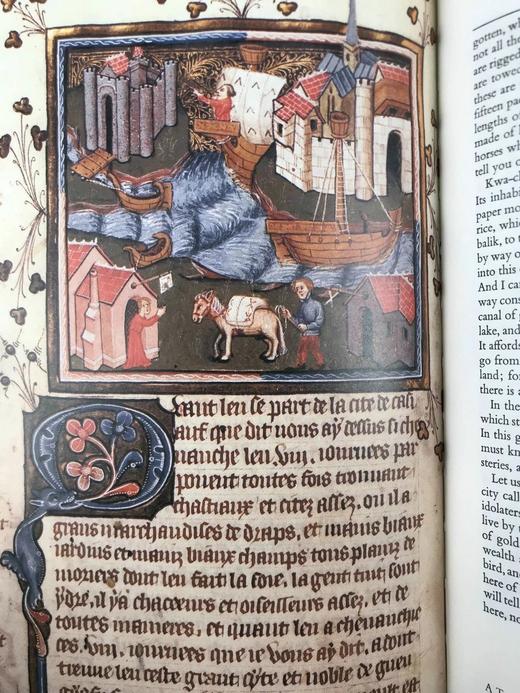 Quant len se part de la cite de casi
anf que dit uous ay dessus si che
uauche len .viij. iournees par
ponent toutes fois trouuant
chastiaux et citez assez. ou il a
grans marchandises de draps, et mains biaux
iardins et mainz biaux champs tous plainz de
moriers dont len fait la soie. la gent tuit sont
ydre. il ya chaceeurs et oiseleurs assez, et de
toutes manieres, et quant len a cheuauche
ces .viij. iournees que ie vous ay dit, adont
treuue len ceste grant cyte et noble de quen
gotten, wh
not all the
are rigged
are towed
these are
fifteen pa
lengths of
made of
horses wh
tell you o
Kwa-ch
Its inhabi
paper mo
rice, whic
balik, to t
by way o
into this
And I can
way cons
canal of g
lake, and
It affords
go from
land; for
there is a
In the
which st
In this g
must kn
steries, a
Let us
city call
idolaters
live by
of gold
wealth
bird, and
here of
will tell
here, no
A T